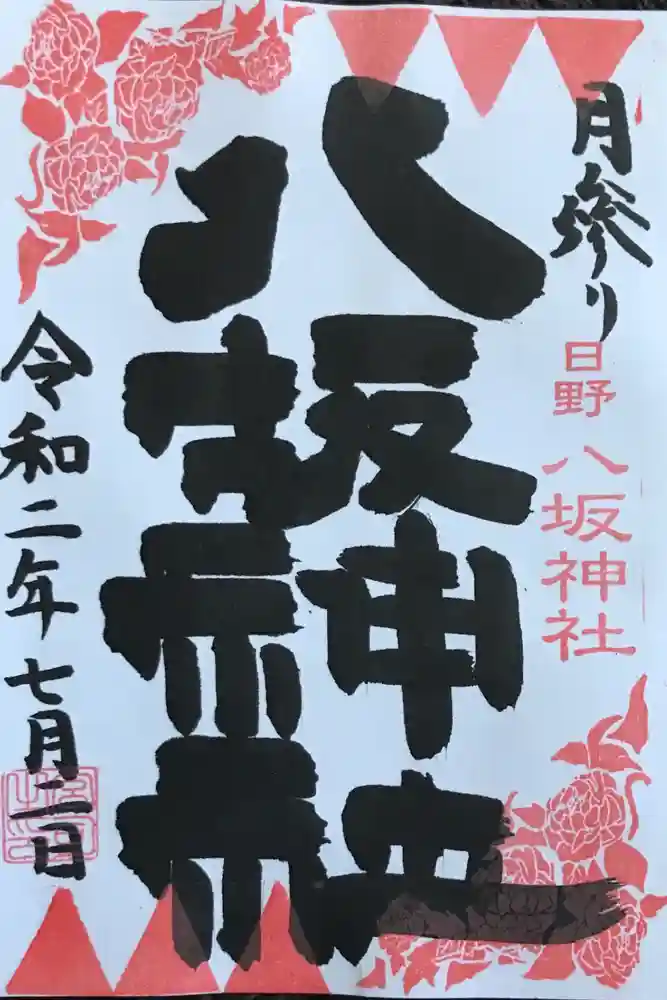 月参り
日野
八坂神社
八坂神社
令和二年七月二日